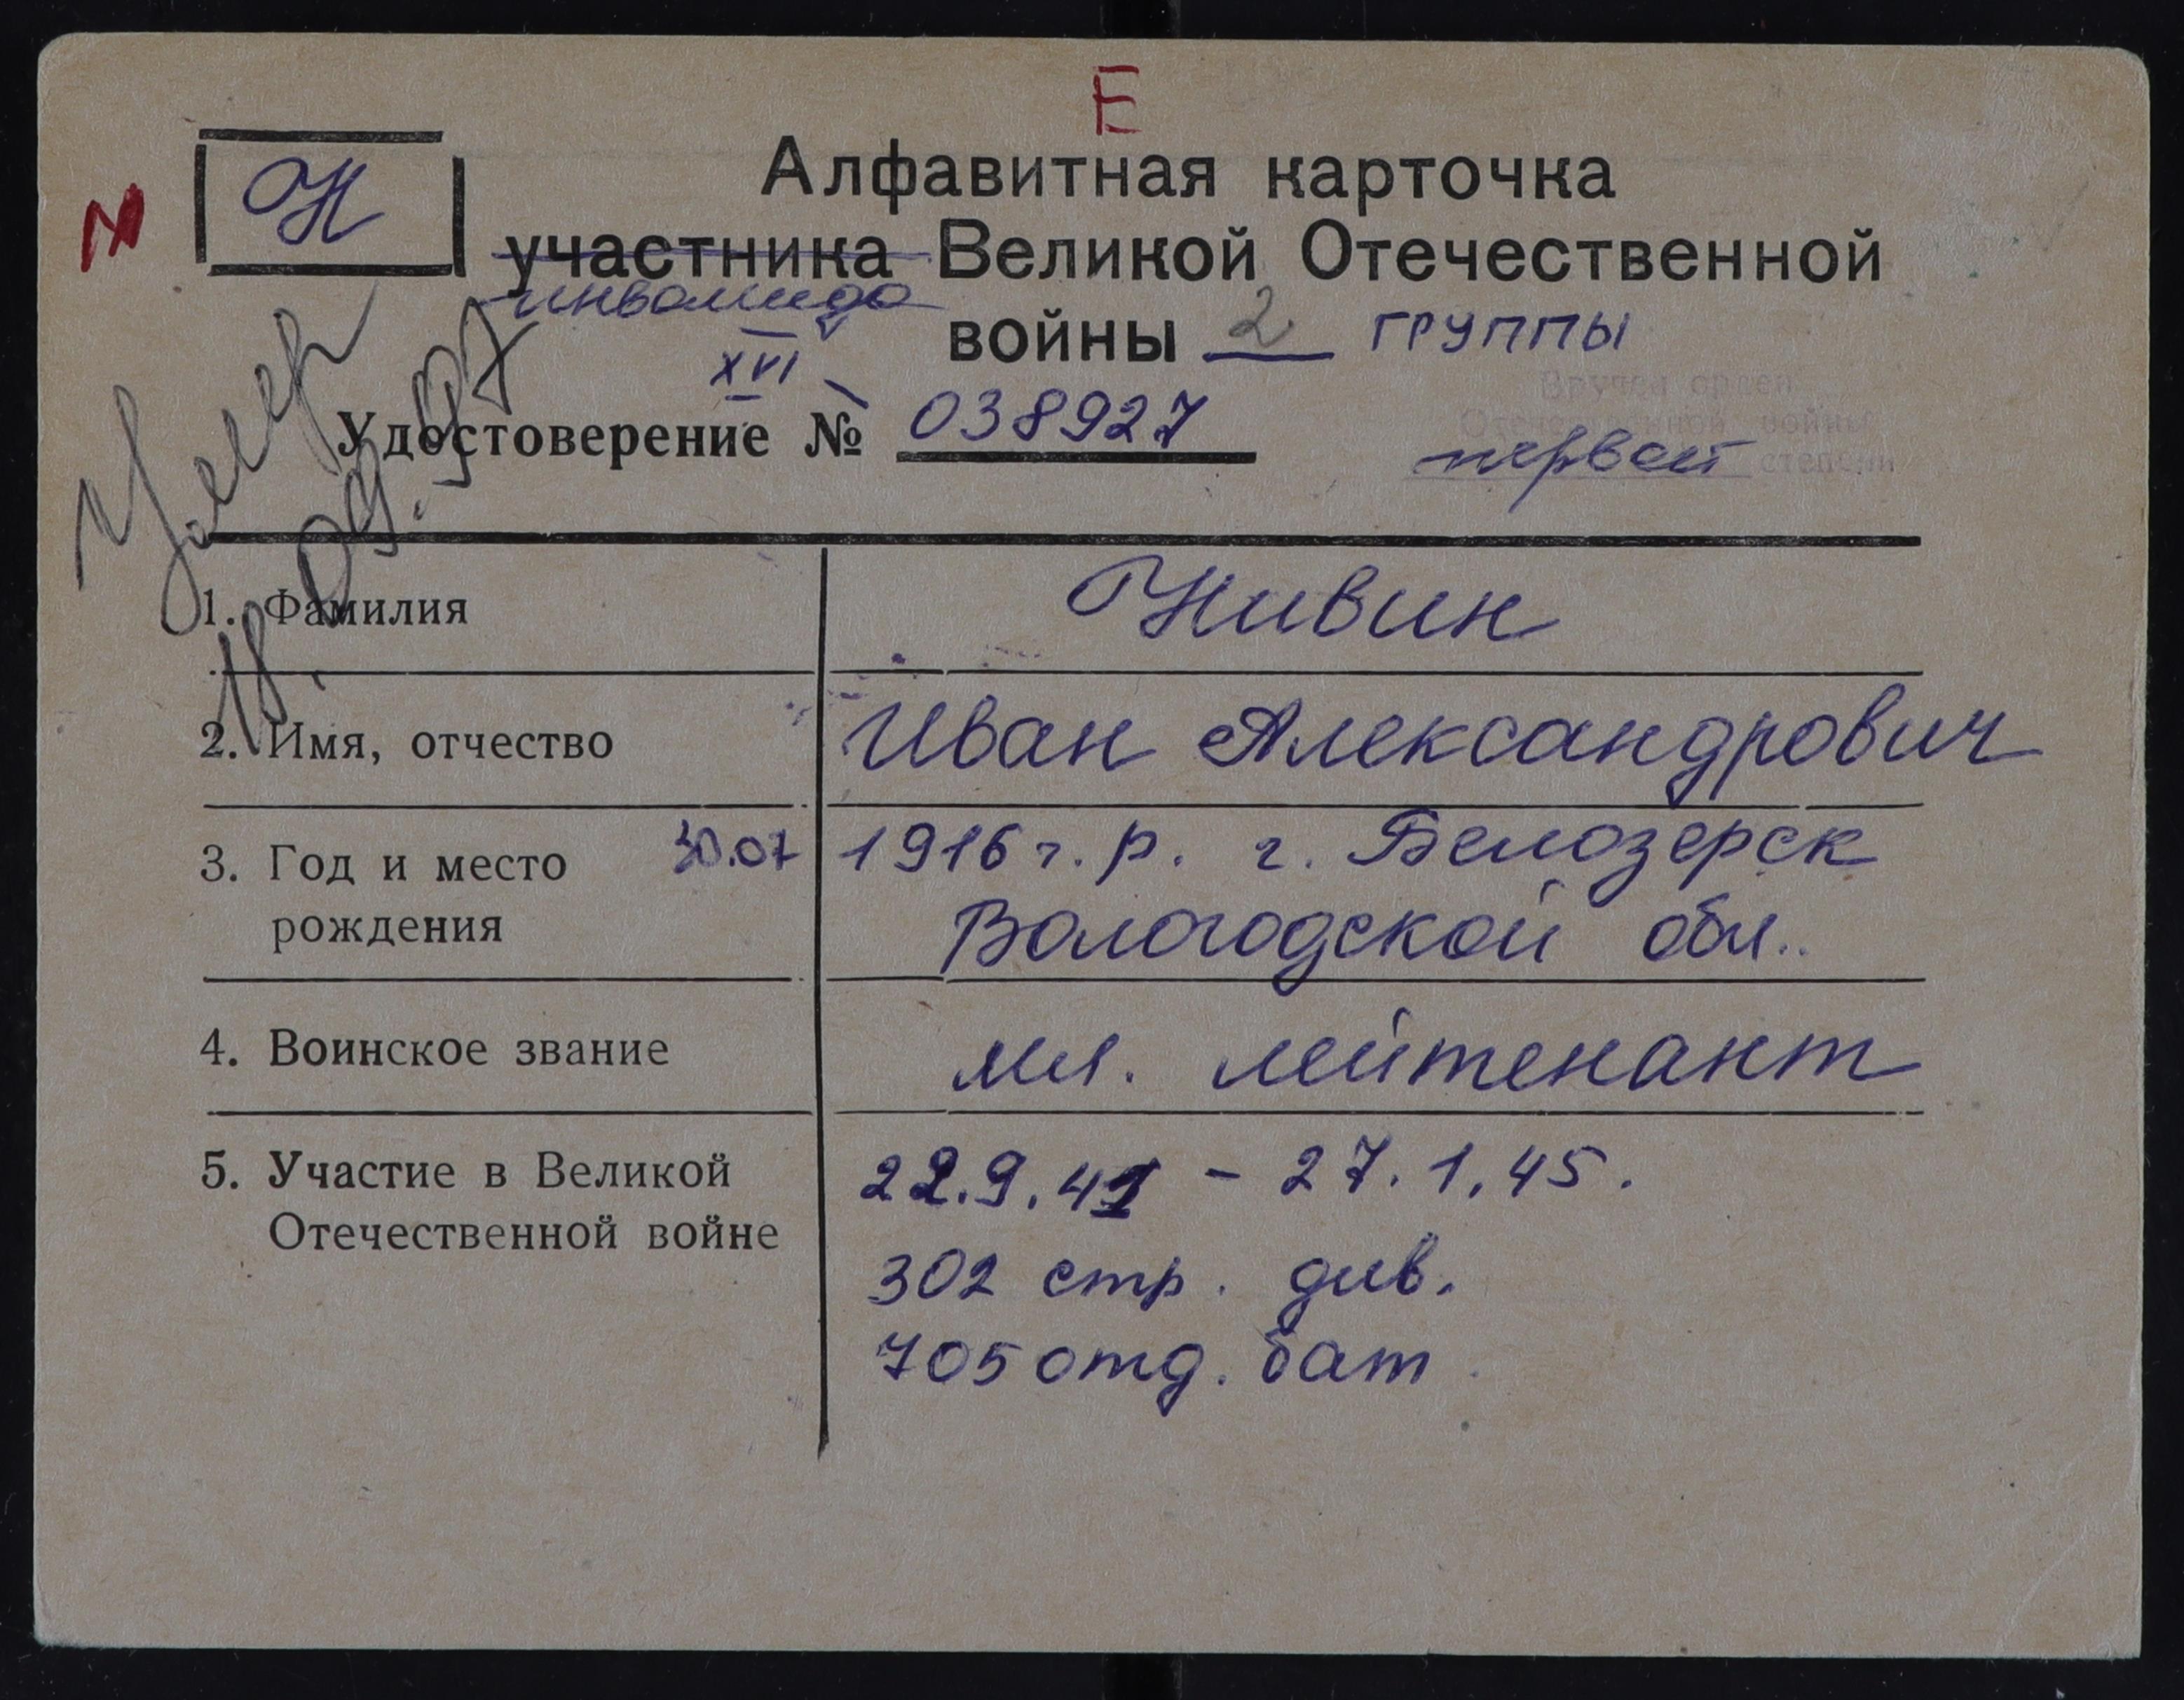 Е
Н
Алфавитная карточка
участника Великой Отечественной
инвалида
войны 2 группы
XVI
Удостоверение № 038927
Вручен орден
Отечественной войны
первой степени
Умер
18.09.97
1. Фамилия Нивин
2. Имя, отчество Иван Александрович
3. Год и место 30.07 1916 г. р. г. Белозерск
рождения Вологодской обл..
4. Воинское звание мл. лейтенант
5. Участие в Великой 22.9.41 - 27.1.45.
Отечественной войне
302 стр. див.
705 отд. бат